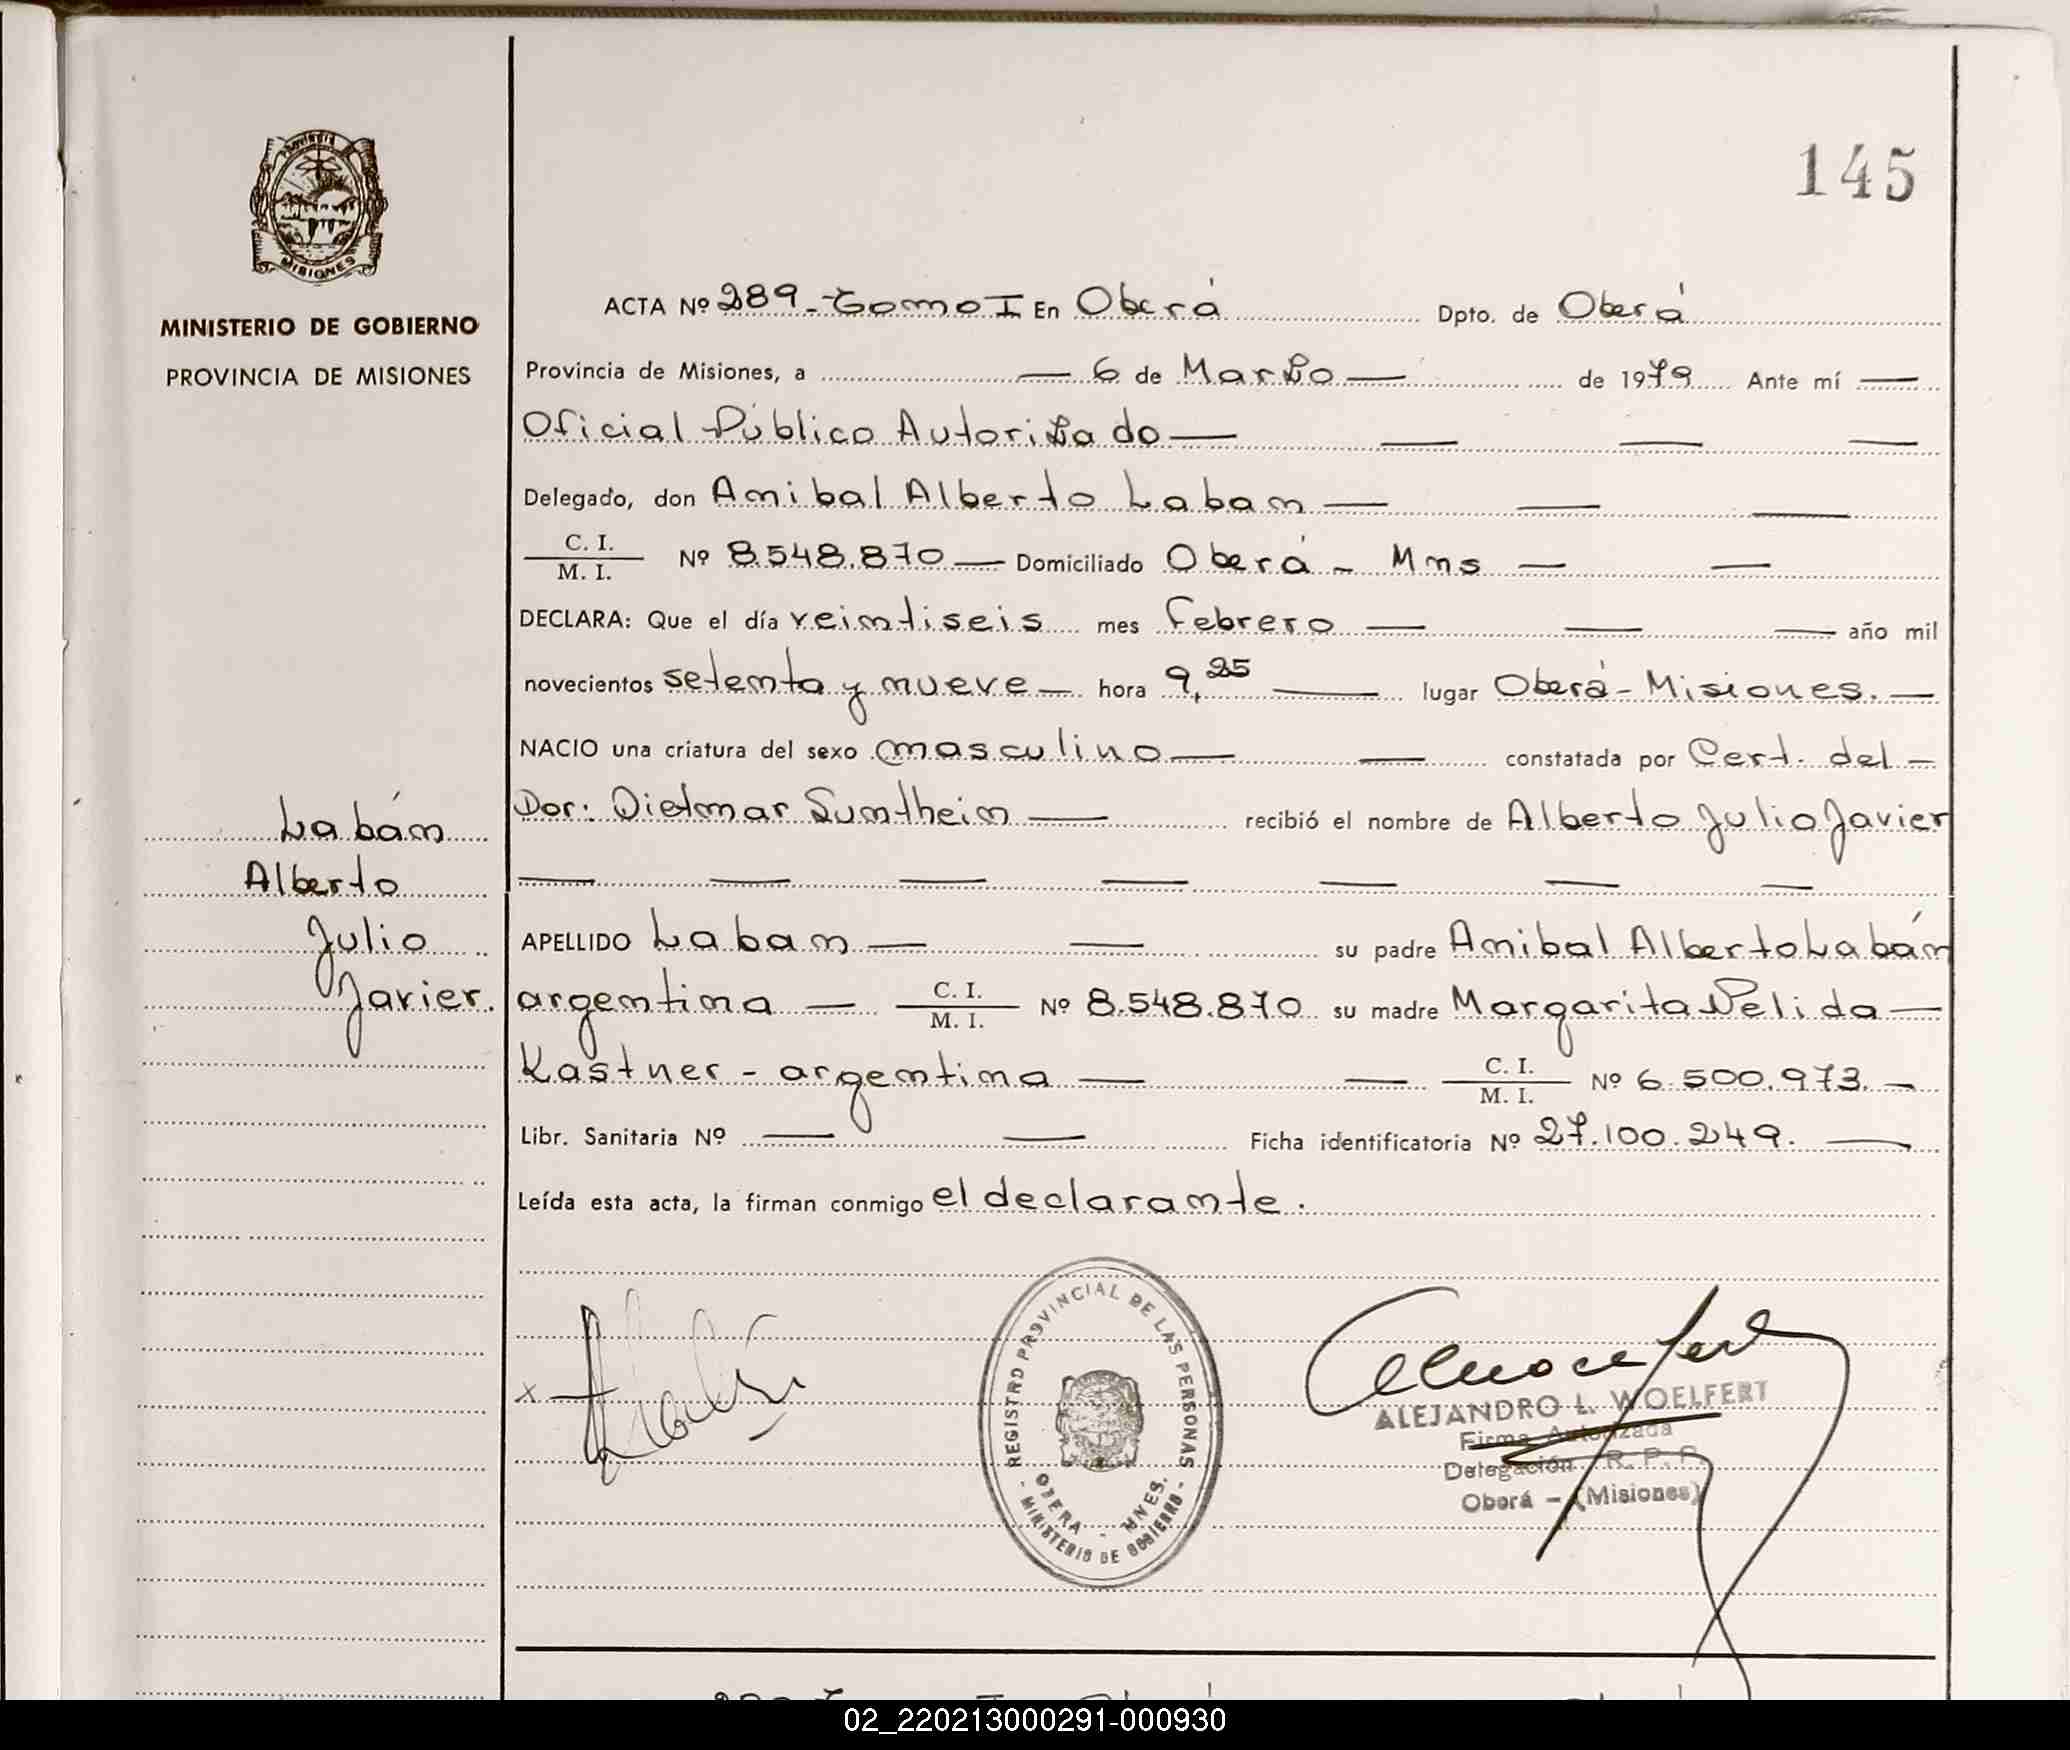 145
Provincia
MISIONES
MINISTERIO DE GOBIERNO
PROVINCIA DE MISIONES
Labán
Alberto
Julio
Javier.
ACTA Nº 289 - Tomo I En Oberá Dpto. de Oberá
Provincia de Misiones, a — 6 de Marzo — de 1979 Ante mí —
Oficial Público Autorizado — — — —
Delegado, don Anibal Alberto Laban — — —
C. I.
M. I. Nº 8.548.870 — Domiciliado Oberá - Mnes — —
DECLARA: Que el día veintiseis mes Febrero — — — año mil
novecientos setenta y nueve — hora 9,25 — lugar Oberá - Misiones. —
NACIO una criatura del sexo masculino — — constatada por Cert. del —
Dor: Dietmar Suntheim — recibió el nombre de Alberto Julio Javier
— — — — — — —
APELLIDO Laban — — su padre Anibal Alberto Labán
argentina — C. I.
M. I. Nº 8.548.870 su madre Margarita Nelida —
Kastner - argentina — — C. I.
M. I. Nº 6.500.973. —
Libr. Sanitaria Nº — — Ficha identificatoria Nº 27.100.249. —
Leída esta acta, la firman conmigo el declarante.
REGISTRO PROVINCIAL DE LAS PERSONAS
OBERA - MNES.
- MINISTERIO DE GOBIERNO -
ALEJANDRO L. WOELFERT
Firma Autorizada
Delegación R. P. P.
Oberá - (Misiones)
02_220213000291-000930